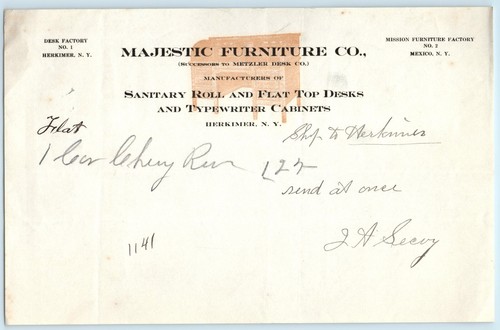 DESK FACTORY
NO. 1
HERKIMER, N. Y.
MISSION FURNITURE FACTORY
NO. 2
MEXICO, N. Y.
MAJESTIC FURNITURE CO.,
(SUCCESSORS TO METZLER DESK CO.)
MANUFACTURERS OF
SANITARY ROLL AND FLAT TOP DESKS
AND TYPEWRITER CABINETS
HERKIMER, N. Y.
Flat
Ship to Herkimer
1 Car Cherry Run
send at once
1141
J A Secoy